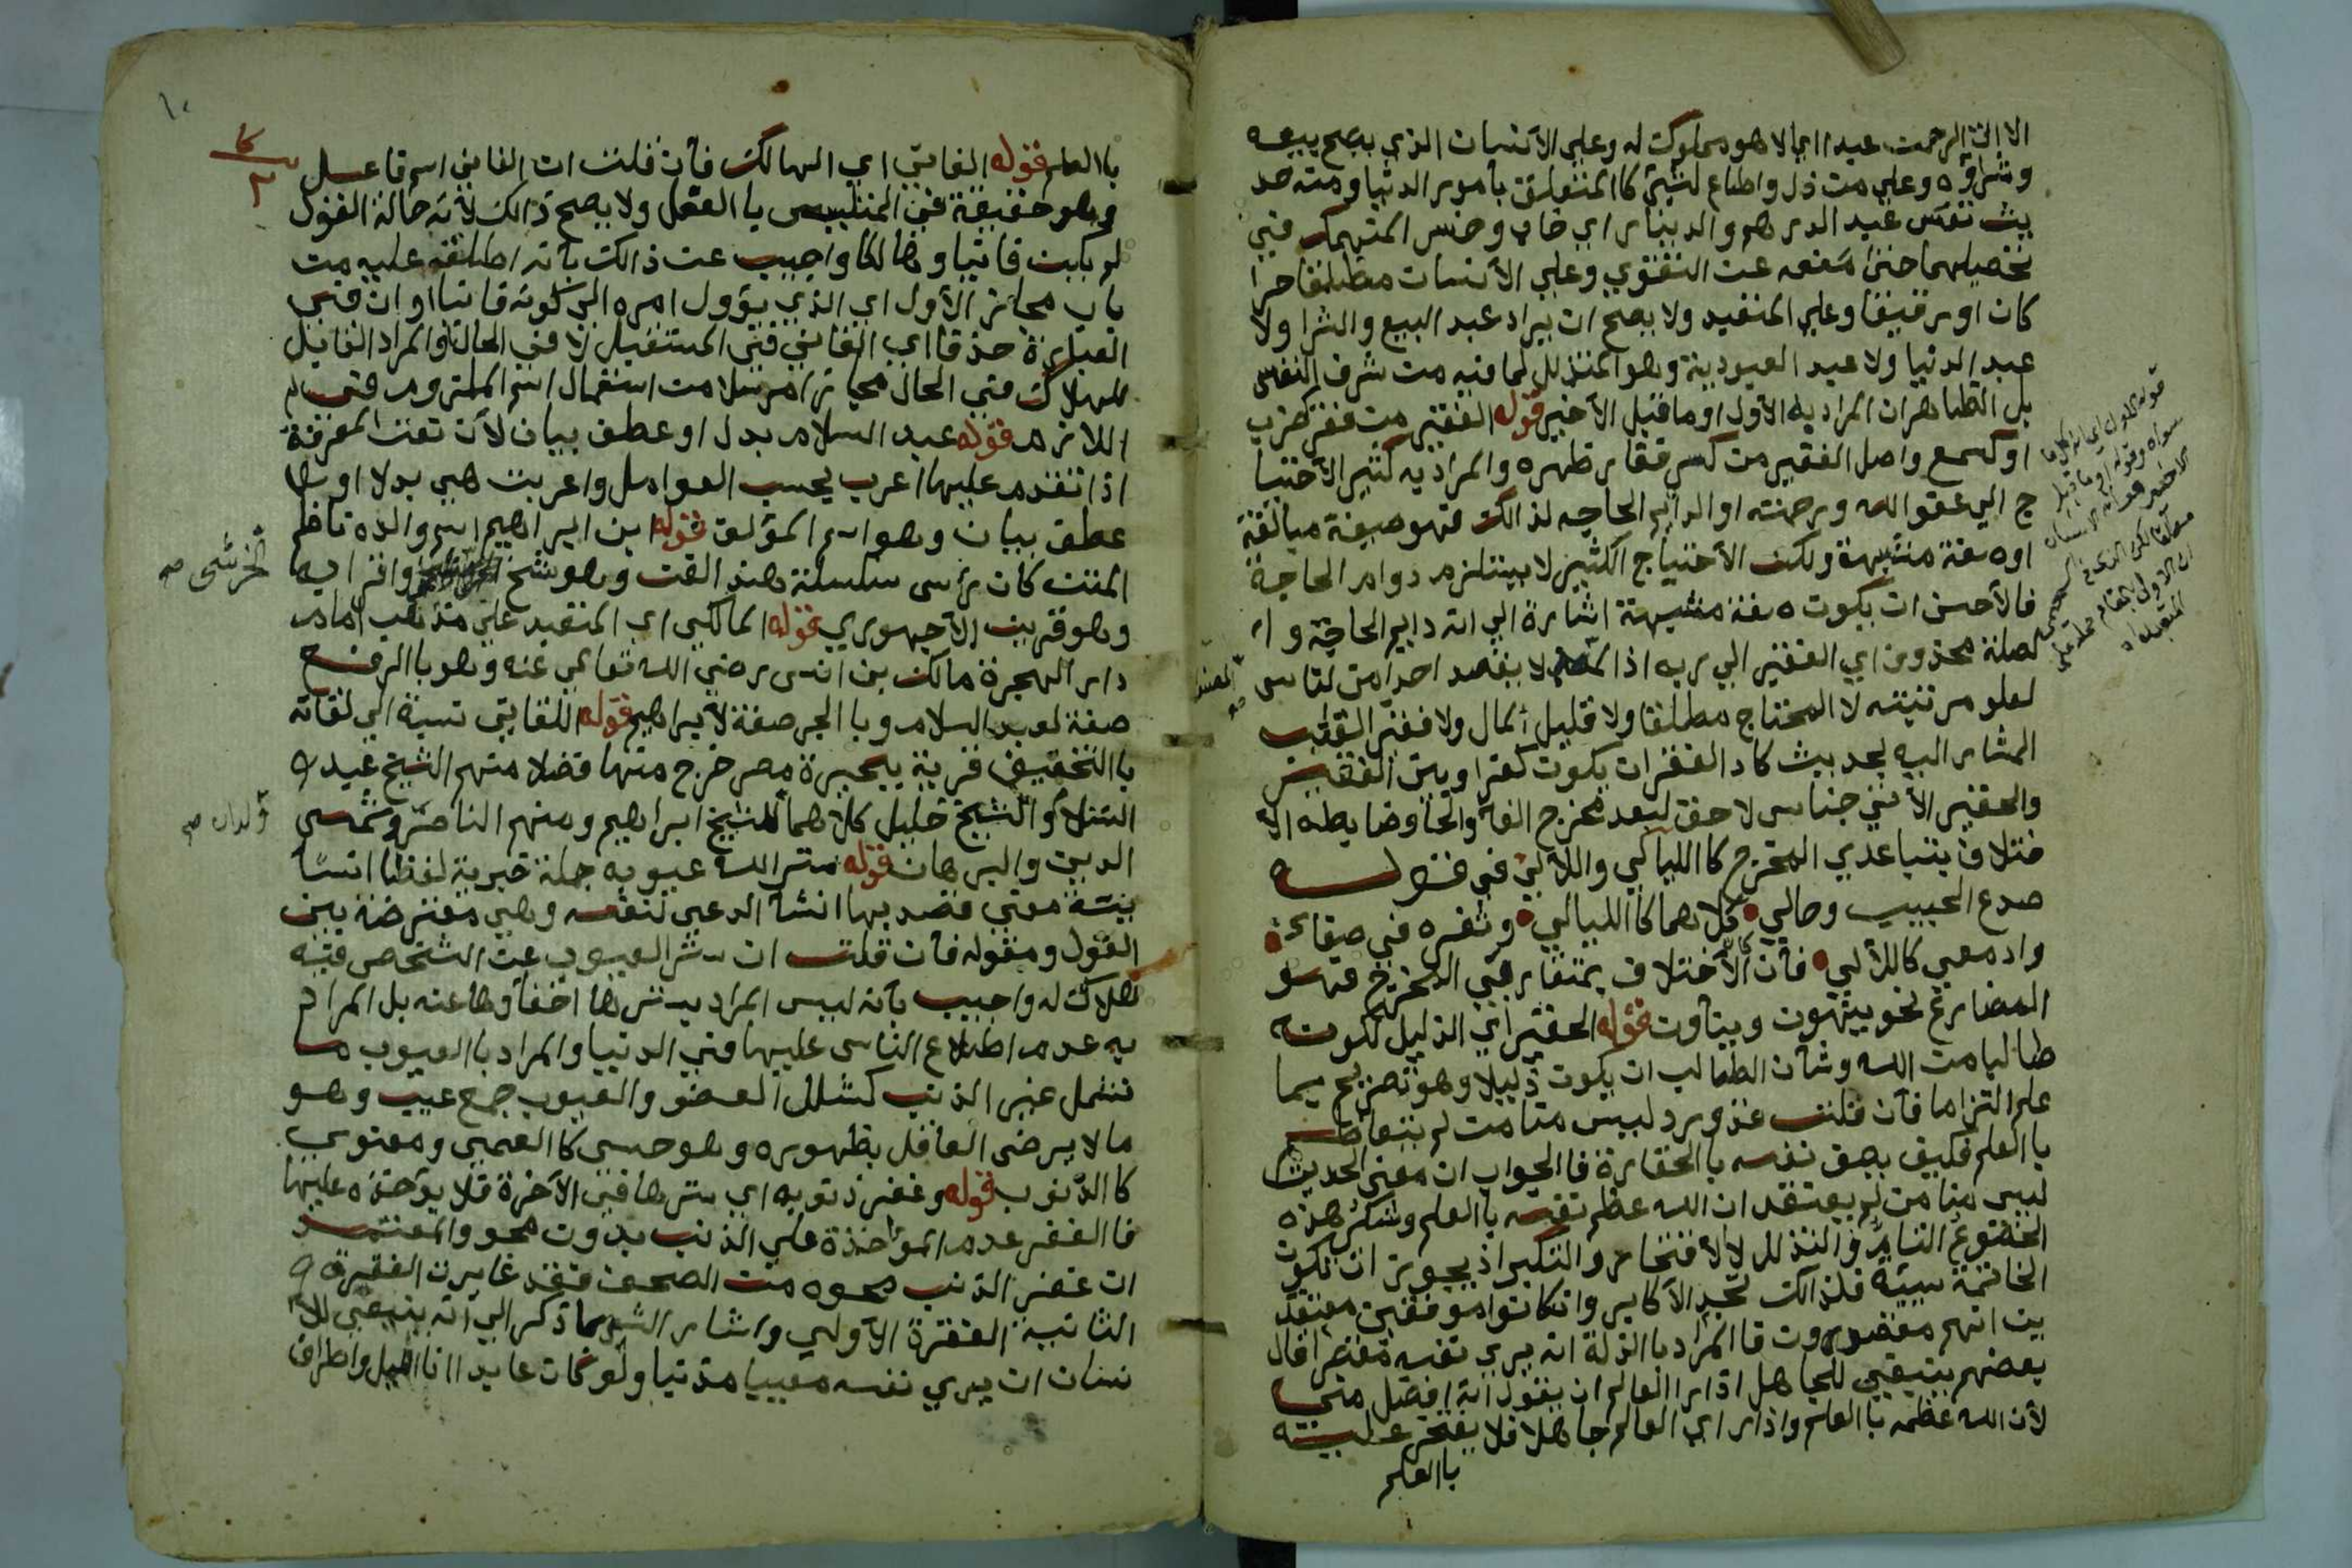 الا اتي الرحمن عبدا اي الا هو مملوك له وعلي الانسان الذي يصح بيعه
وشراؤه وعلي من ذل واطاع لشيئ كا المتعلق بأمور الدنيا ومنه حد
يث تعس عبد الدرهم والدينار اي خاب وخسر المتهمك في
تحصيلهما حتي منعه عن التقوي وعلي الأنسان مطلقا حرا
كان او رقيقا وعلي المنقيد ولا يصح ان يراد عبد البيع والشرا ولا
عبد الدنيا ولا عبد العبودية وهو المتذلل لما فيه من شرف النفس
بل الظاهر ان المراد به الأول او ما قبل الأخير قوله الفقير من فقر كضرب
او كسمع واصل الفقير من كسر فقار ظهره والمراد به كثير الأحتيا
ج الي عفو الله ورحمته او الدايم الحاجه لذالك فهو صيغة مبالغة
او صفة مشبهة ولكن الأحتياج الكثير لا يستلزم دوام الحاجة
فالأحسن ان يكون صفة مشبهة اشارة الي انه دايم الحاجة وا
لصلة محذوف اي الفقير الي ربه اذا لا يقصد احدا من الناس
لعلو مرتبته لا المحتاج مطلقا ولا قليل المال ولا فقير القلب
المشار اليه بحديث كاد الفقر ان يكون كفرا وبين الفقير
والحقير الأتي جناس لا حق لبعد مخرج الفا والحا وضابطه الا
ختلاف بتباعدي المخرج كا الليالي واللألي في قوله
صدع الحبيب وحالي كلاهما كا الليالي وثغره في صفاء
وادمعي كاللألي فأن كان الأختلاف بمتقاربي المخرج فهو
المضارع نحو ينهون وينأون قوله الحقير اي الذليل لكونه
طالبا من الله وشأن الطالب ان يكون ذليلا وهو تصريح بما
علم التزاما فأن قلت قد ورد ليس منا من لم يتعاظم
با العلم فكيف يصف نفسه با الحقارة فا الجواب ان معني الحديث
ليس منا من لم يعتقد ان الله عظم نفسه با العلم وشكر هذه
الخضوع التام والتذلل لا الأفتخار والتكبر اذ يجوز ان تكون
الخاتمة سيئة فلذالك تجد الأكابر وان كانوا موفقين معتقد
ين انهم مقصرون فا المراد با الذلة انه يري نفسه مقصرا قال
بعضهم ينبغي للجاهل اذا را العالم ان يقول انه افضل مني
لأن الله عظمه با العلم واذا راي العالم جاهلا فلا يفتخر عليه
با العلم
قوله الأول اي
سواه وقوله او ما قبل
الاخير هو الانسان
با العلم قوله الفاني اي الهالك فأن قلت ان الفاني اسم فاعل
وهو حقيقة في المتلبس با الفعل ولا يصح ذالك لأنه حالة القول
لم يكن فانيا وهالكا واجيب عن ذالك بأنه اطلقه عليه من
باب مجاز الأول اي الذي يؤول امره الي كونه فانيا او ان في
العبارة حذفا اي الفاني في المستقبل لا في الحال او المراد القابل
للهلاك في الحال مجازا مرسلا من استعمال اسم الملزوم في
اللازم قوله عبد السلام بدل او عطف بيان لأن نعت المعرفة
اذا تقدم عليها اعرب بحسب العوامل واعربت هي بدلا او
عطف بيان وهو اسم المؤلف قوله ابن ابراهيم اسم والده ناظم
المتن كان رأس سلسلة هذا الفن وهو شيخ الخرشي واقرانه
وهو قرين الأجهوري قوله المالكي اي المنقيد علي مذهب امام
دار الهجرة مالك بن انس رضي الله تعالي عنه وهو با الرفع
صفة لعبد السلام وبا الجر صفة لأبراهيم قوله اللقاني نسبة الي لقانة
با التخفيف قرية ببحيرة مصر خرج منها فضلا منهم الشيخ عبد
السلام والشيخ خليل كلاهما ولدان للشيخ ابراهيم ومنهم الناصر وشمس
الدين والبرهان قوله ستر الله عيوبه جملة خبرية لفظا انشا
ئية معني قصد بها انشأ الدعي لنفسه وهي معترضة بين
القول ومقوله فأن قلت ان ستر العيوب عن الشخص فيه
هلاك له واجيب بأنه ليس المراد بسترها اخفأوها عنه بل المراد
به عدم اطلاع الناس عليها في الدنيا والمراد با العيوب ما
تشمل غير الذنب كشلل العضو والعيوب جمع عيب وهو
ما لا يرضي العاقل بظهوره وهو حسي كا العمي ومعنوي
كا الذنوب قوله وغفر ذنوبه اي سترها في الأخرة فلا يؤاخذه عليها
فا الغفر عدم المواخذة علي الذنب بدون محو والمعتمد
ان غفر الذنب محوه من الصحف فقد غايرت الفقرة
الثانية الفقرة الأولي واشار الشر بما ذكر الي انه ينبغي للأ
نسان ان يري نفسه معيبا مذنبا ولو كان عابدا انا الليل واطراف